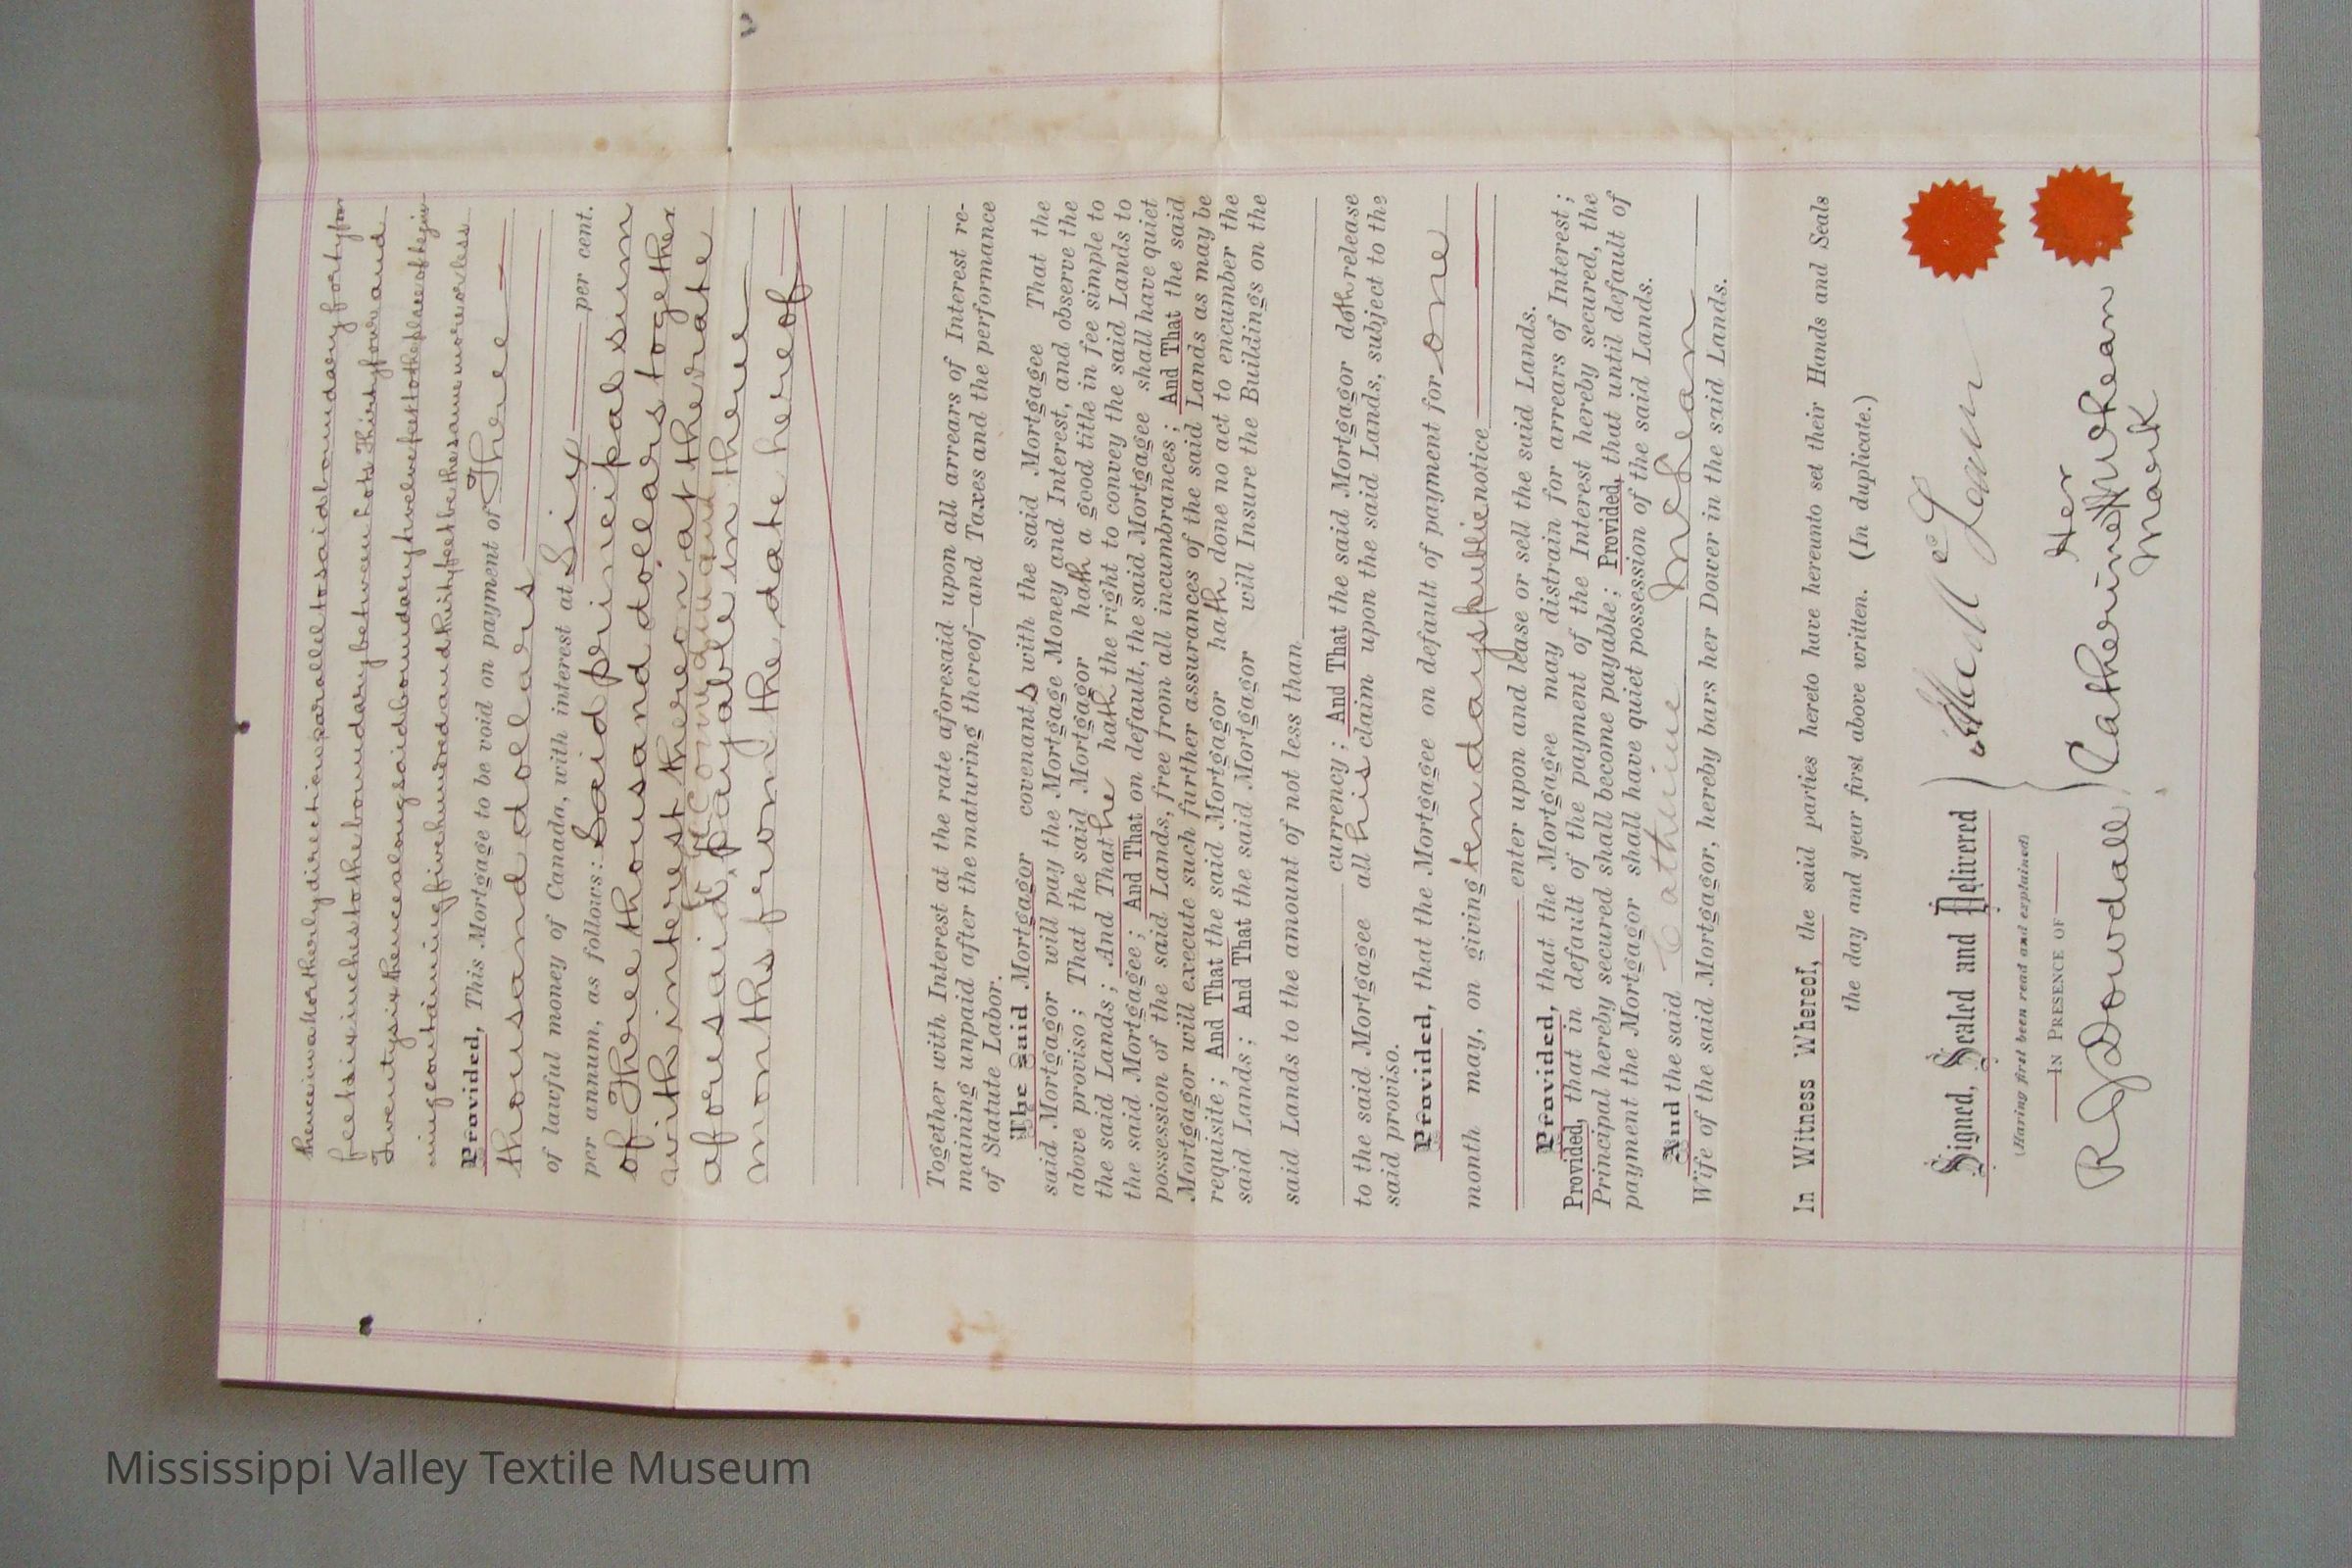 thence in a Northerly direction parallel to said boundary forty four
feet six inches to the boundary between Lots Thirty four and
Twenty six thence along said boundary twelve feet to the place of begin
ning containing five hundred and thirty feet be the same more or less
Provided, This Mortgage to be void on payment of Three
thousand dollars
of lawful money of Canada, with interest at Six per cent.
per annum, as follows: Said principal sum
of Three thousand dollars together
with interest thereon at the rate
aforesaid, payable in three
months from the date hereof
Together with Interest at the rate aforesaid upon all arrears of Interest re-
maining unpaid after the maturing thereof—and Taxes and the performance
of Statute Labor.
The said Mortgagor covenants with the said Mortgagee That the
said Mortgagor will pay the Mortgage Money and Interest, and observe the
above proviso; That the said Mortgagor hath a good title in fee simple to
the said Lands; And That he hath the right to convey the said Lands to
the said Mortgagee; And That on default, the said Mortgagee shall have quiet
possession of the said Lands, free from all incumbrances; And That the said
Mortgagor will execute such further assurances of the said Lands as may be
requisite; And That the said Mortgagor hath done no act to encumber the
said Lands; And That the said Mortgagor will Insure the Buildings on the
said Lands to the amount of not less than
currency; And That the said Mortgagor doth release
to the said Mortgagee all his claim upon the said Lands, subject to the
said proviso.
Provided, that the Mortgagee on default of payment for one
month may, on giving ten days public notice
enter upon and lease or sell the said Lands.
Provided, that the Mortgagee may distrain for arrears of Interest;
Provided, that in default of the payment of the Interest hereby secured, the
Principal hereby secured shall become payable; Provided, that until default of
payment the Mortgagor shall have quiet possession of the said Lands.
And the said Catherine McLean
Wife of the said Mortgagor, hereby bars her Dower in the said Lands.
In Witness Whereof, the said parties hereto have hereunto set their Hands and Seals
the day and year first above written. (In duplicate.)
Signed, Sealed and Delivered
McLean
(Having first been read and explained)
IN PRESENCE OF
Her
R J Dowdall Catherine X McLean
Mark
Mississippi Valley Textile Museum